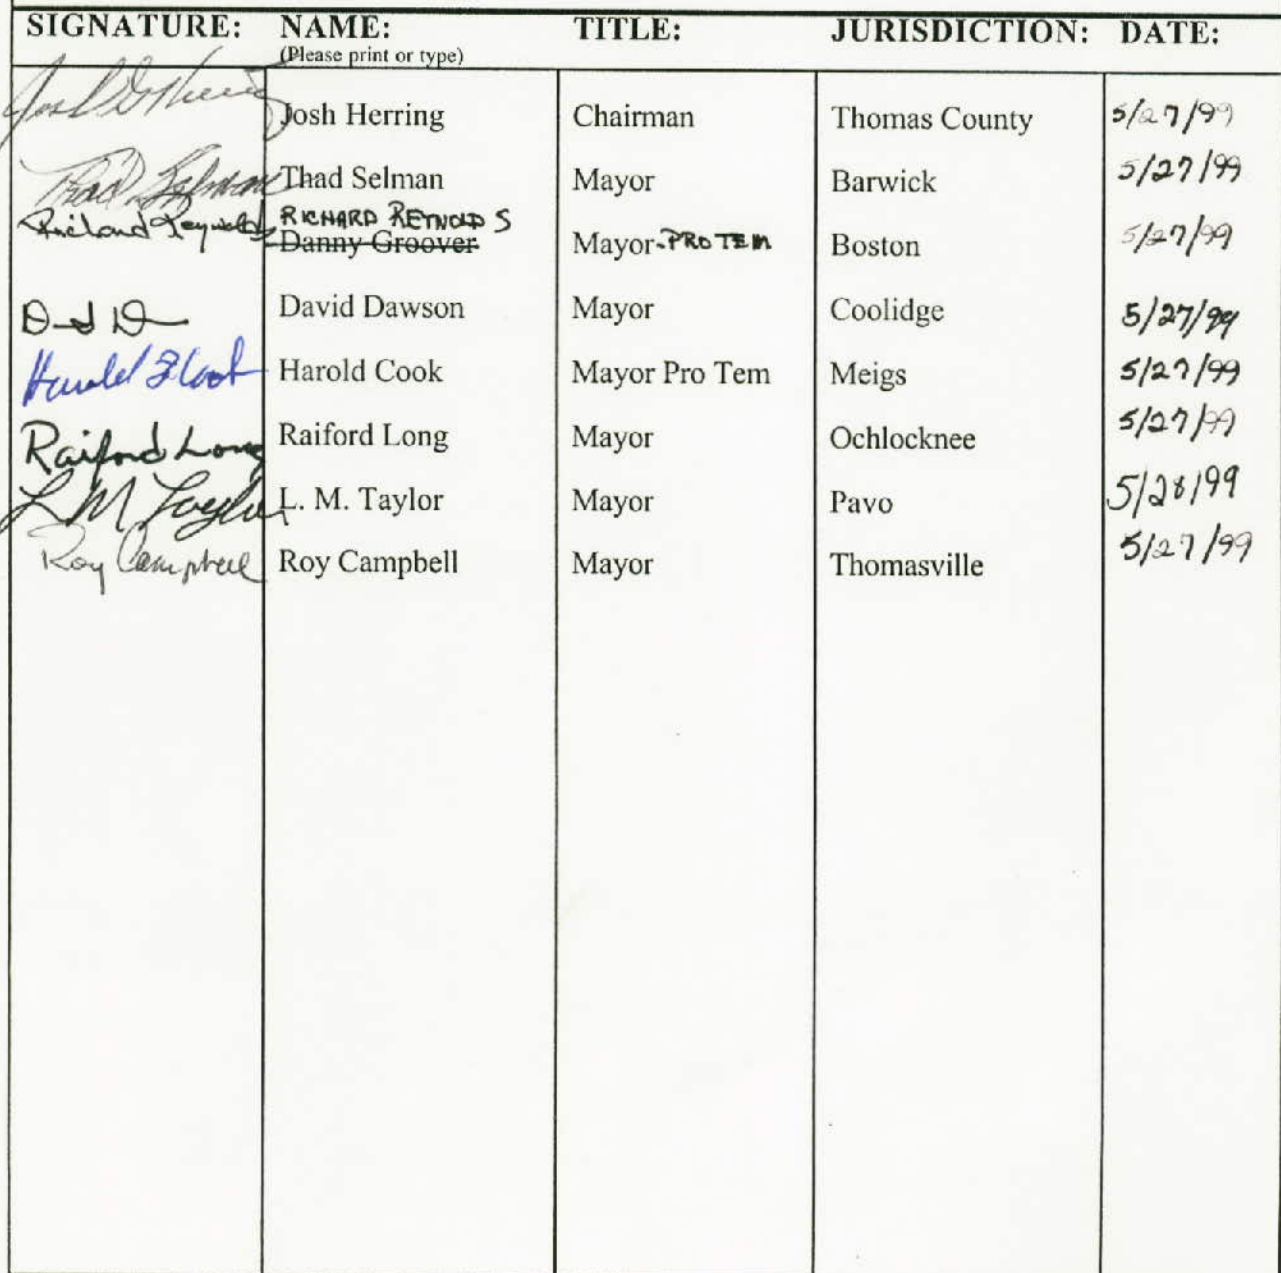 SIGNATURE: NAME: TITLE: JURISDICTION: DATE:
(Please print or type)
Josh Herring Chairman Thomas County 5/27/99
Thad Selman Thad Selman Mayor Barwick 5/27/99
Richard Reynolds RICHARD REYNOLDS
Danny Groover Mayor-PRO TEM Boston 5/27/99
David Dawson Mayor Coolidge 5/27/99
Harold Cook Harold Cook Mayor Pro Tem Meigs 5/27/99
Raiford Long Raiford Long Mayor Ochlocknee 5/27/99
L M Taylor L. M. Taylor Mayor Pavo 5/28/99
Roy Campbell Roy Campbell Mayor Thomasville 5/27/99